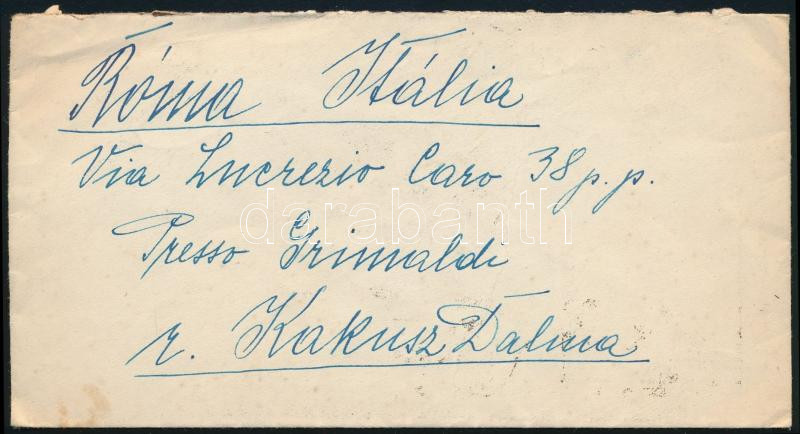 Róma Itália
Via Lucrezio Caro 38 p.p.
darabanth
Presso Grimaldi
r. Kakusz Dalma